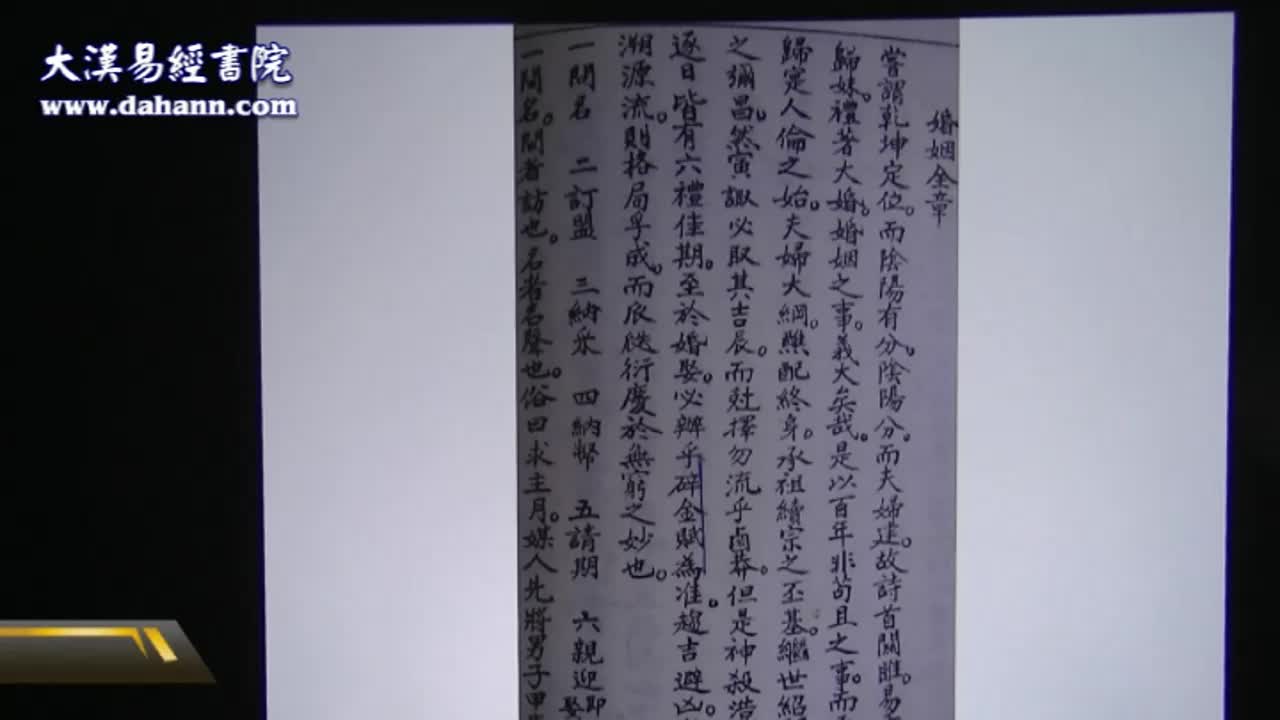 大漢易經書院
www.dahann.com
婚姻全章
嘗謂乾坤定位。而陰陽有分。陰陽分。而夫婦建。故詩首關雎。易
歸妹。禮著大婚。婚姻之事。義大矣哉。是以百年非苟且之事。而
歸定人倫之始。夫婦大綱。縣配終身。承祖續宗之丕基。繼世紹
之彌昌。然寅諏必取其吉辰。而尅擇勿流乎鹵莽。但是神殺浩
逐日皆有六禮佳期。至於婚娶。必辦乎碎金賦為准。趨吉避凶。
溯源流。則格局孚成。而瓜瓞衍慶於無窮之妙也。
一問名 二訂盟 三納采 四納幣 五請期 六親迎 即娶
一問名。問者訪也。名者名聲也。俗曰求主月。媒人先將男子甲